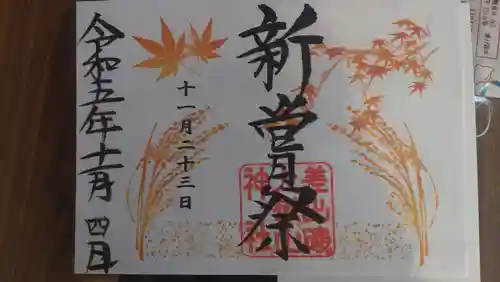 新嘗祭
十一月二十三日
令和五年十一月四日